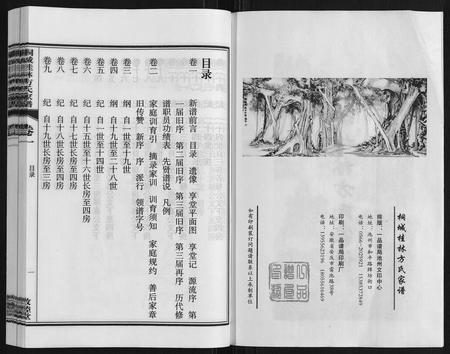 目录
卷一 新谱前言 目录 遗像 享堂平面图 享堂记 源流序 第
一届旧序 第二届旧序 第三届旧序 第三届再序 历代修
谱职员功绩表 先贤谱说 凡例
卷二 家庭训育引 摘录家训 训育须知 家庭规约 善后家章
旧传赞 新序 序 派行 领谱字号
卷三 纲 自一世至十九世
卷四 纲 自十九世至二十八世
卷五 纪 自一世至十四世
卷六 纪 自十五世至十六世长房至四房
卷七 纪 自十七世至十八世长房至四房
卷八 纪 自十九世长房至四房
卷九 纪 自十九世长房至三房
桐城桂林方氏家谱
卷一
目录
一
桐城桂林方氏家谱
排版：一品谱局池州文印中心
地址：池州市和平路拌坊街口
电话：0566-2025921
印刷：一品谱局印刷厂
地址：安徽省安庆市菱北路
如有印刷装订问题请联系以上承制单位